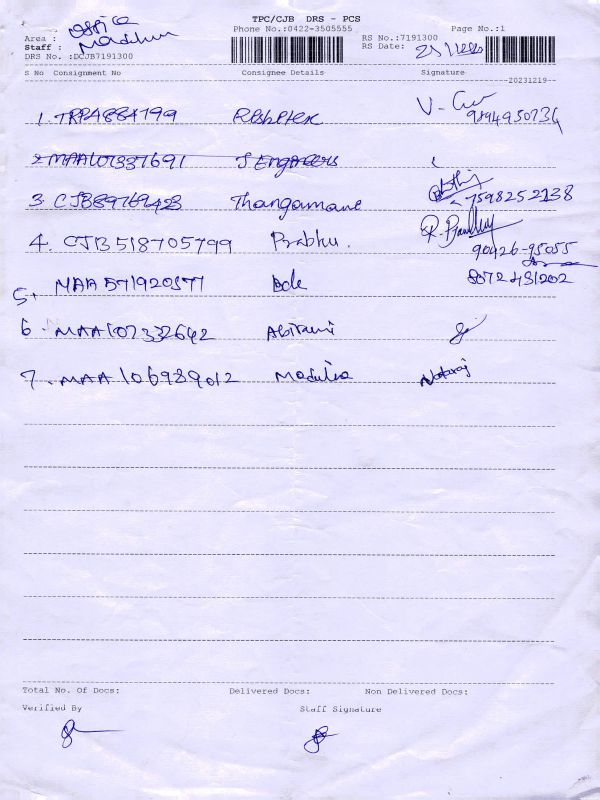 TPC/CJB DRS - PCS
Phone No.:0422-3505555 Page No.:1
Area : office
Staff : Madhu
RS No.:7191300
RS Date:
DRS No. :DCJB7191300
S No Consignment No Consignee Details Signature
20231219
1.
9894950734
2. MAA107337691 J Engineers
3. CJB89769423 Thangamane 7598252138
4. CJB518705799 Prabhu. R. Prabhu
90426-95055
5. MAA571920577 8072431202
6. MAA107332642 Abirami
7. MAA106989012 Nataraj
Total No. Of Docs: Delivered Docs: Non Delivered Docs:
Verified By Staff Signature